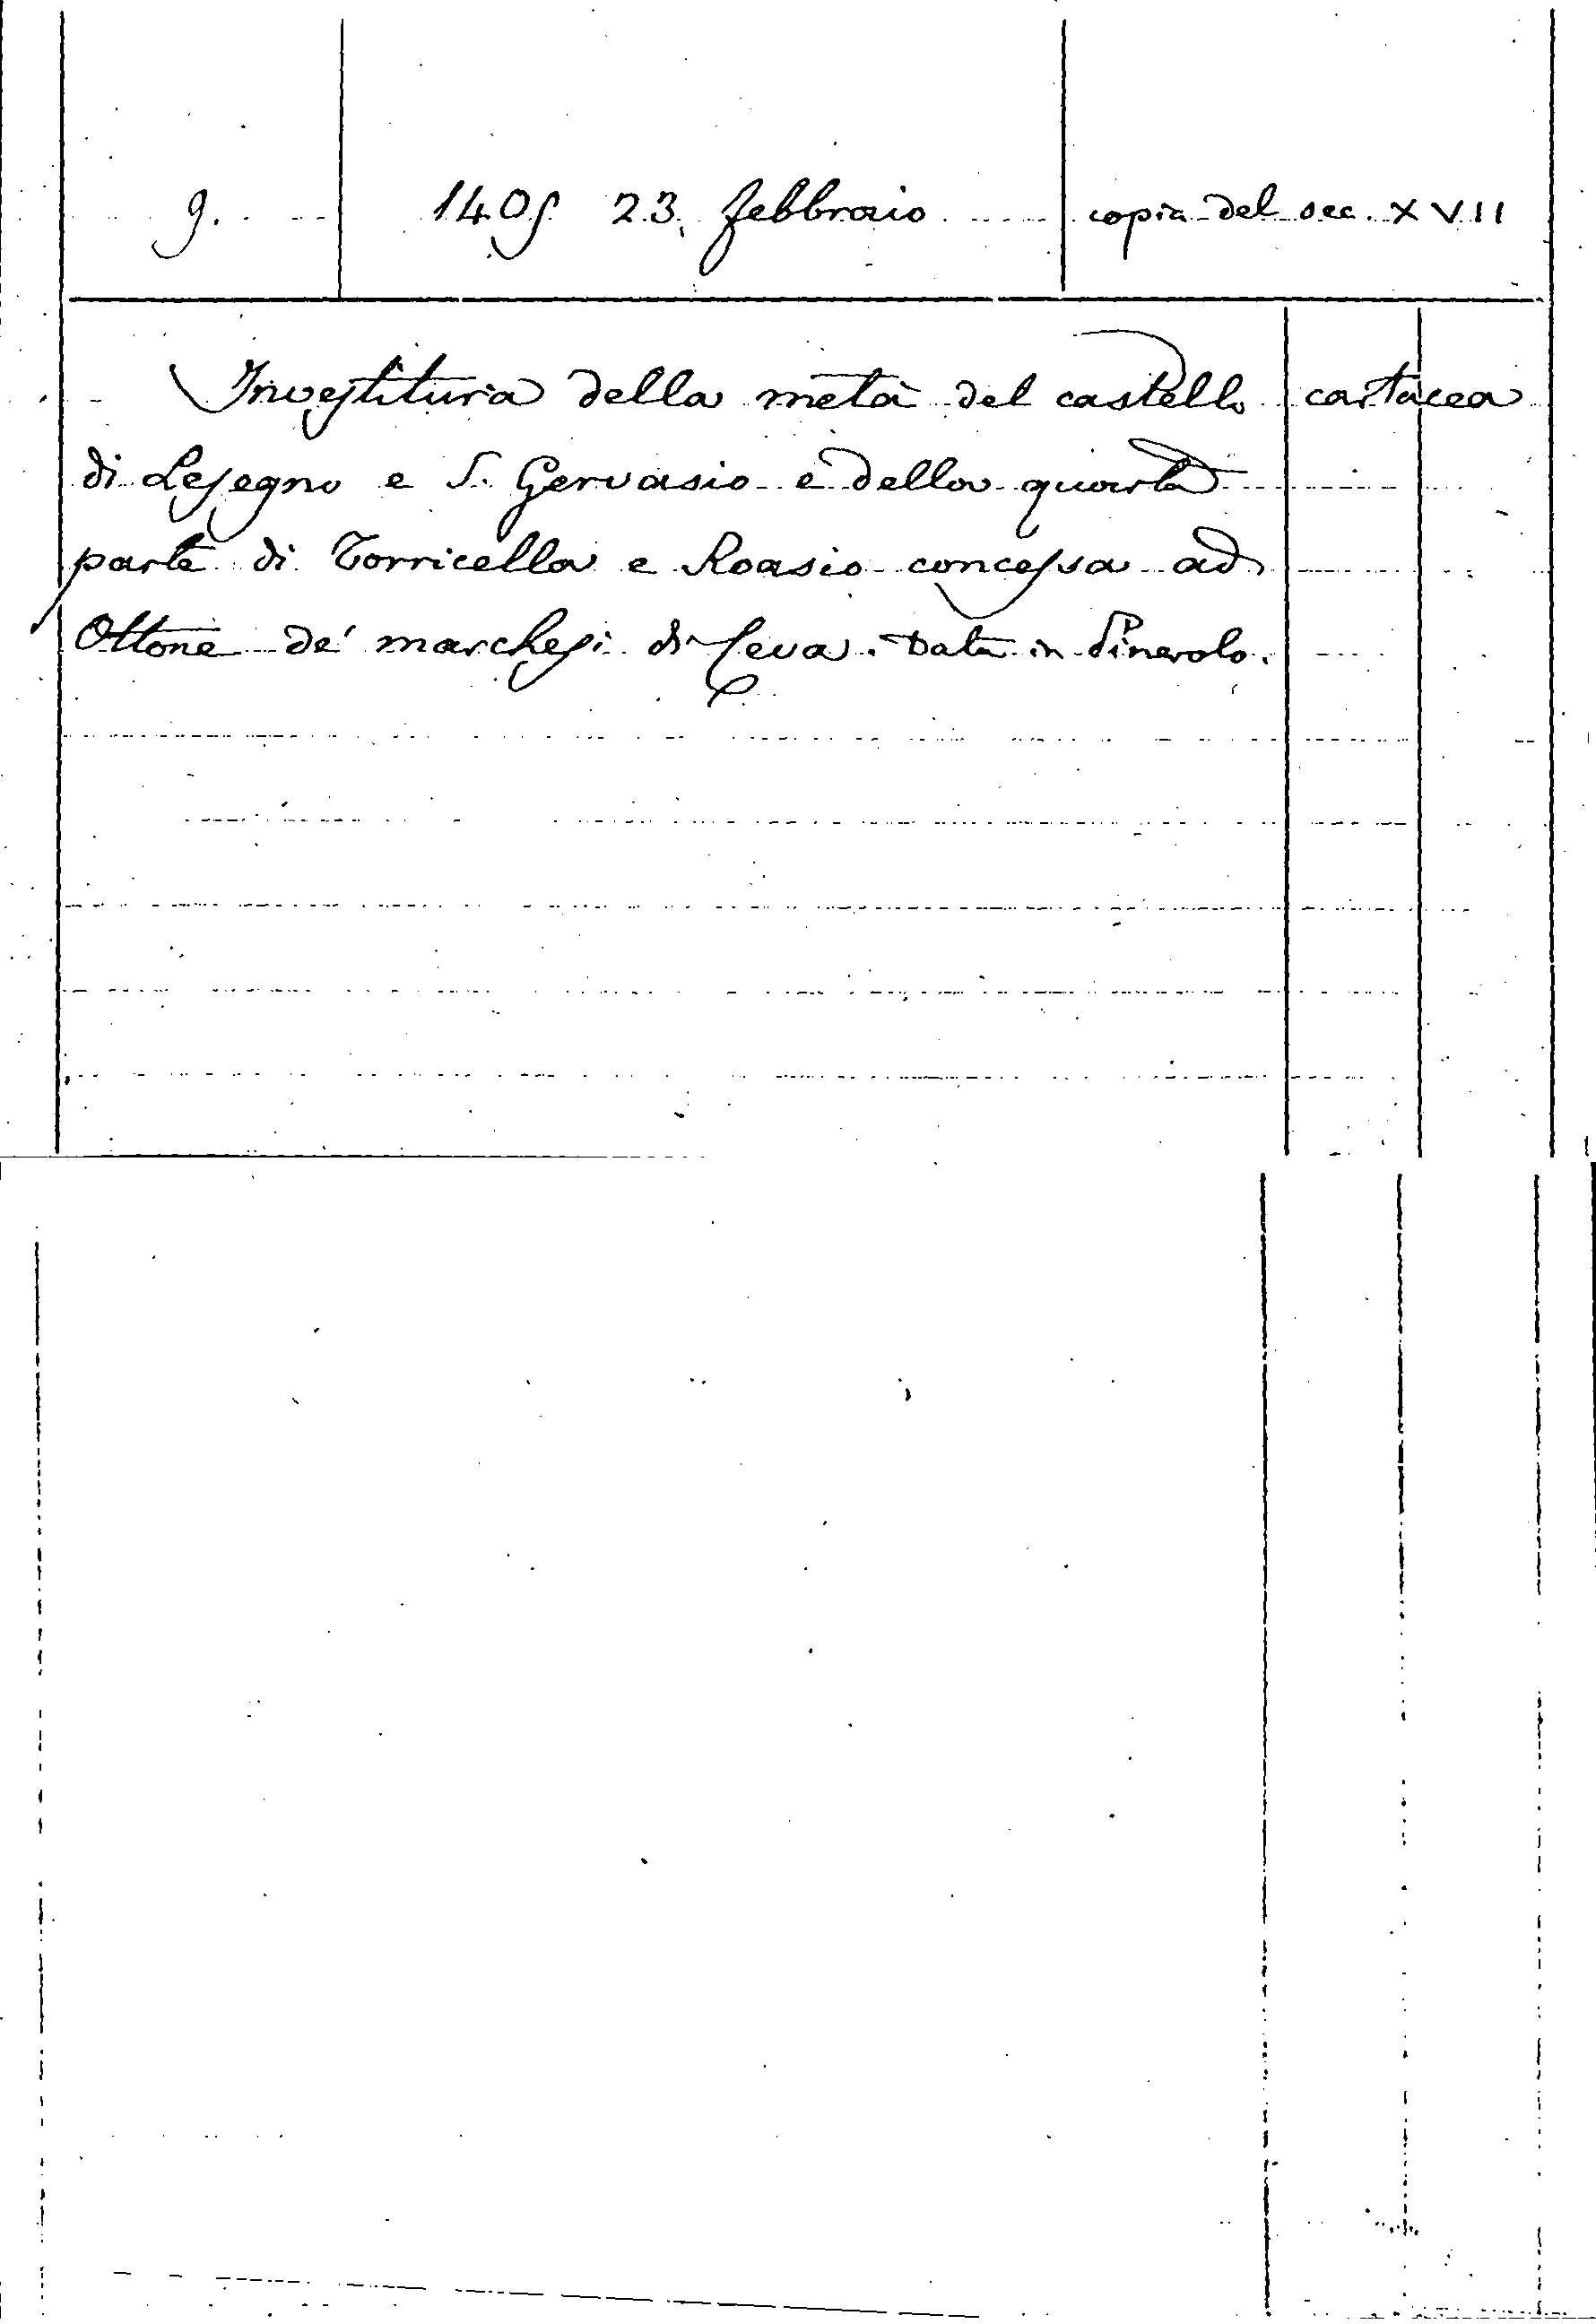 9. 1409 23 febbraio copia del sec. XVII
Investitura della metà del castello cartacea
di Lesegno e S. Gervasio e della quarta
parte di Torricella e Roasio concessa ad
Ottone de' marchesi di Ceva. Data in Pinerolo.